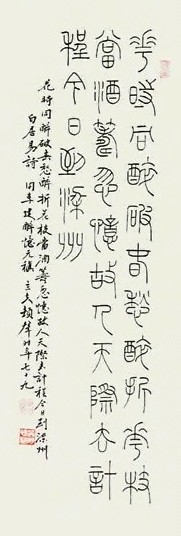 華時同醉破春愁醉折華枝
當酒籌忽憶故人天際去計
程今日到梁州
花時同醉破春愁醉折花枝當酒籌忽憶故人天際去計程今日到梁州
白居易詩 同李建醉憶元稹 時年七十九